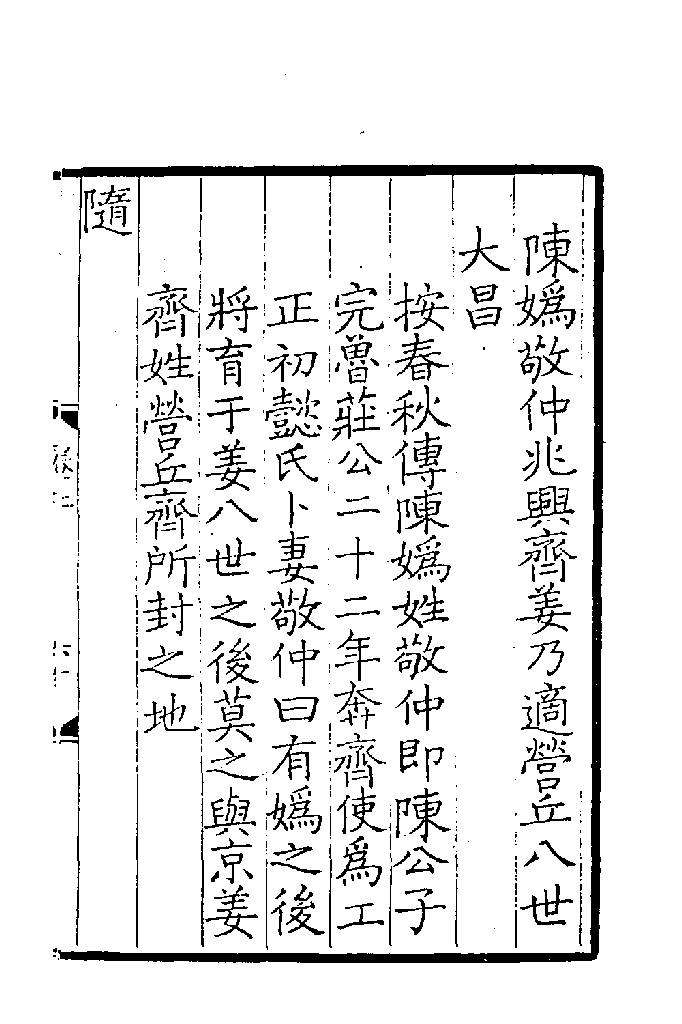 陳嬀敬仲兆興齊姜乃適營丘八世
大昌
按春秋傳陳嬀姓敬仲即陳公子
完魯莊公二十二年奔齊使爲工
正初懿氏卜妻敬仲曰有嬀之後
將育于姜八世之後莫之與京姜
齊姓營丘齊所封之地
隨